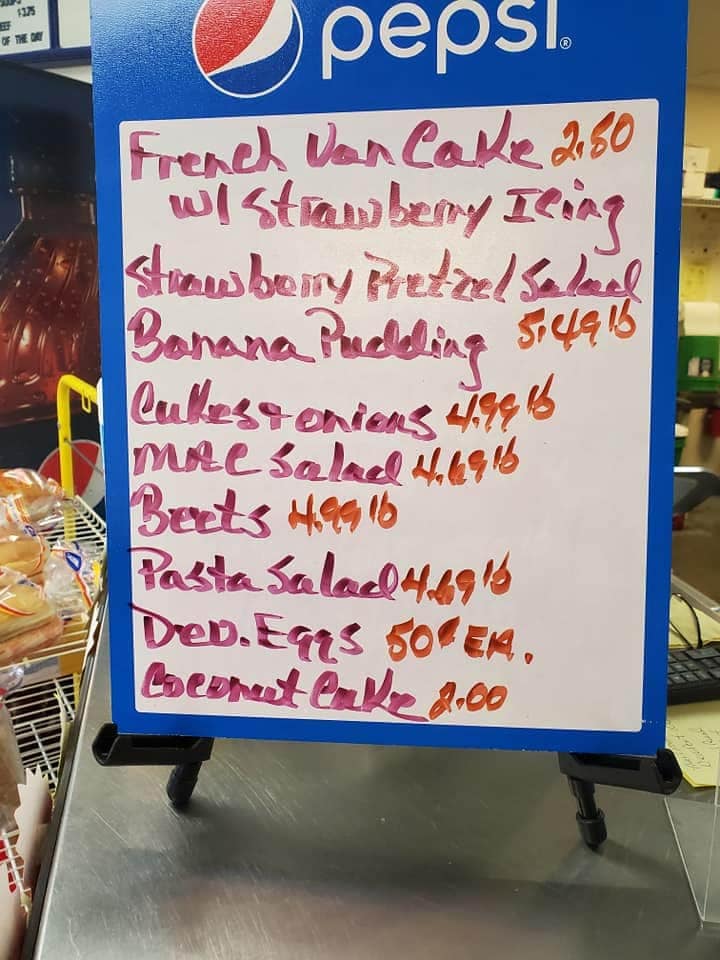 1.375
OF THE DAY
pepsi®
French Van Cake 2.50
w/ Strawberry Icing
Strawberry Pretzel Salad
Banana Pudding 5.49 lb
Cukes + onions 4.99 lb
MAC Salad 4.69 lb
Beets 4.99 lb
Pasta Salad 4.69 lb
Dev. Eggs 50¢ EA.
Coconut Cake 2.00